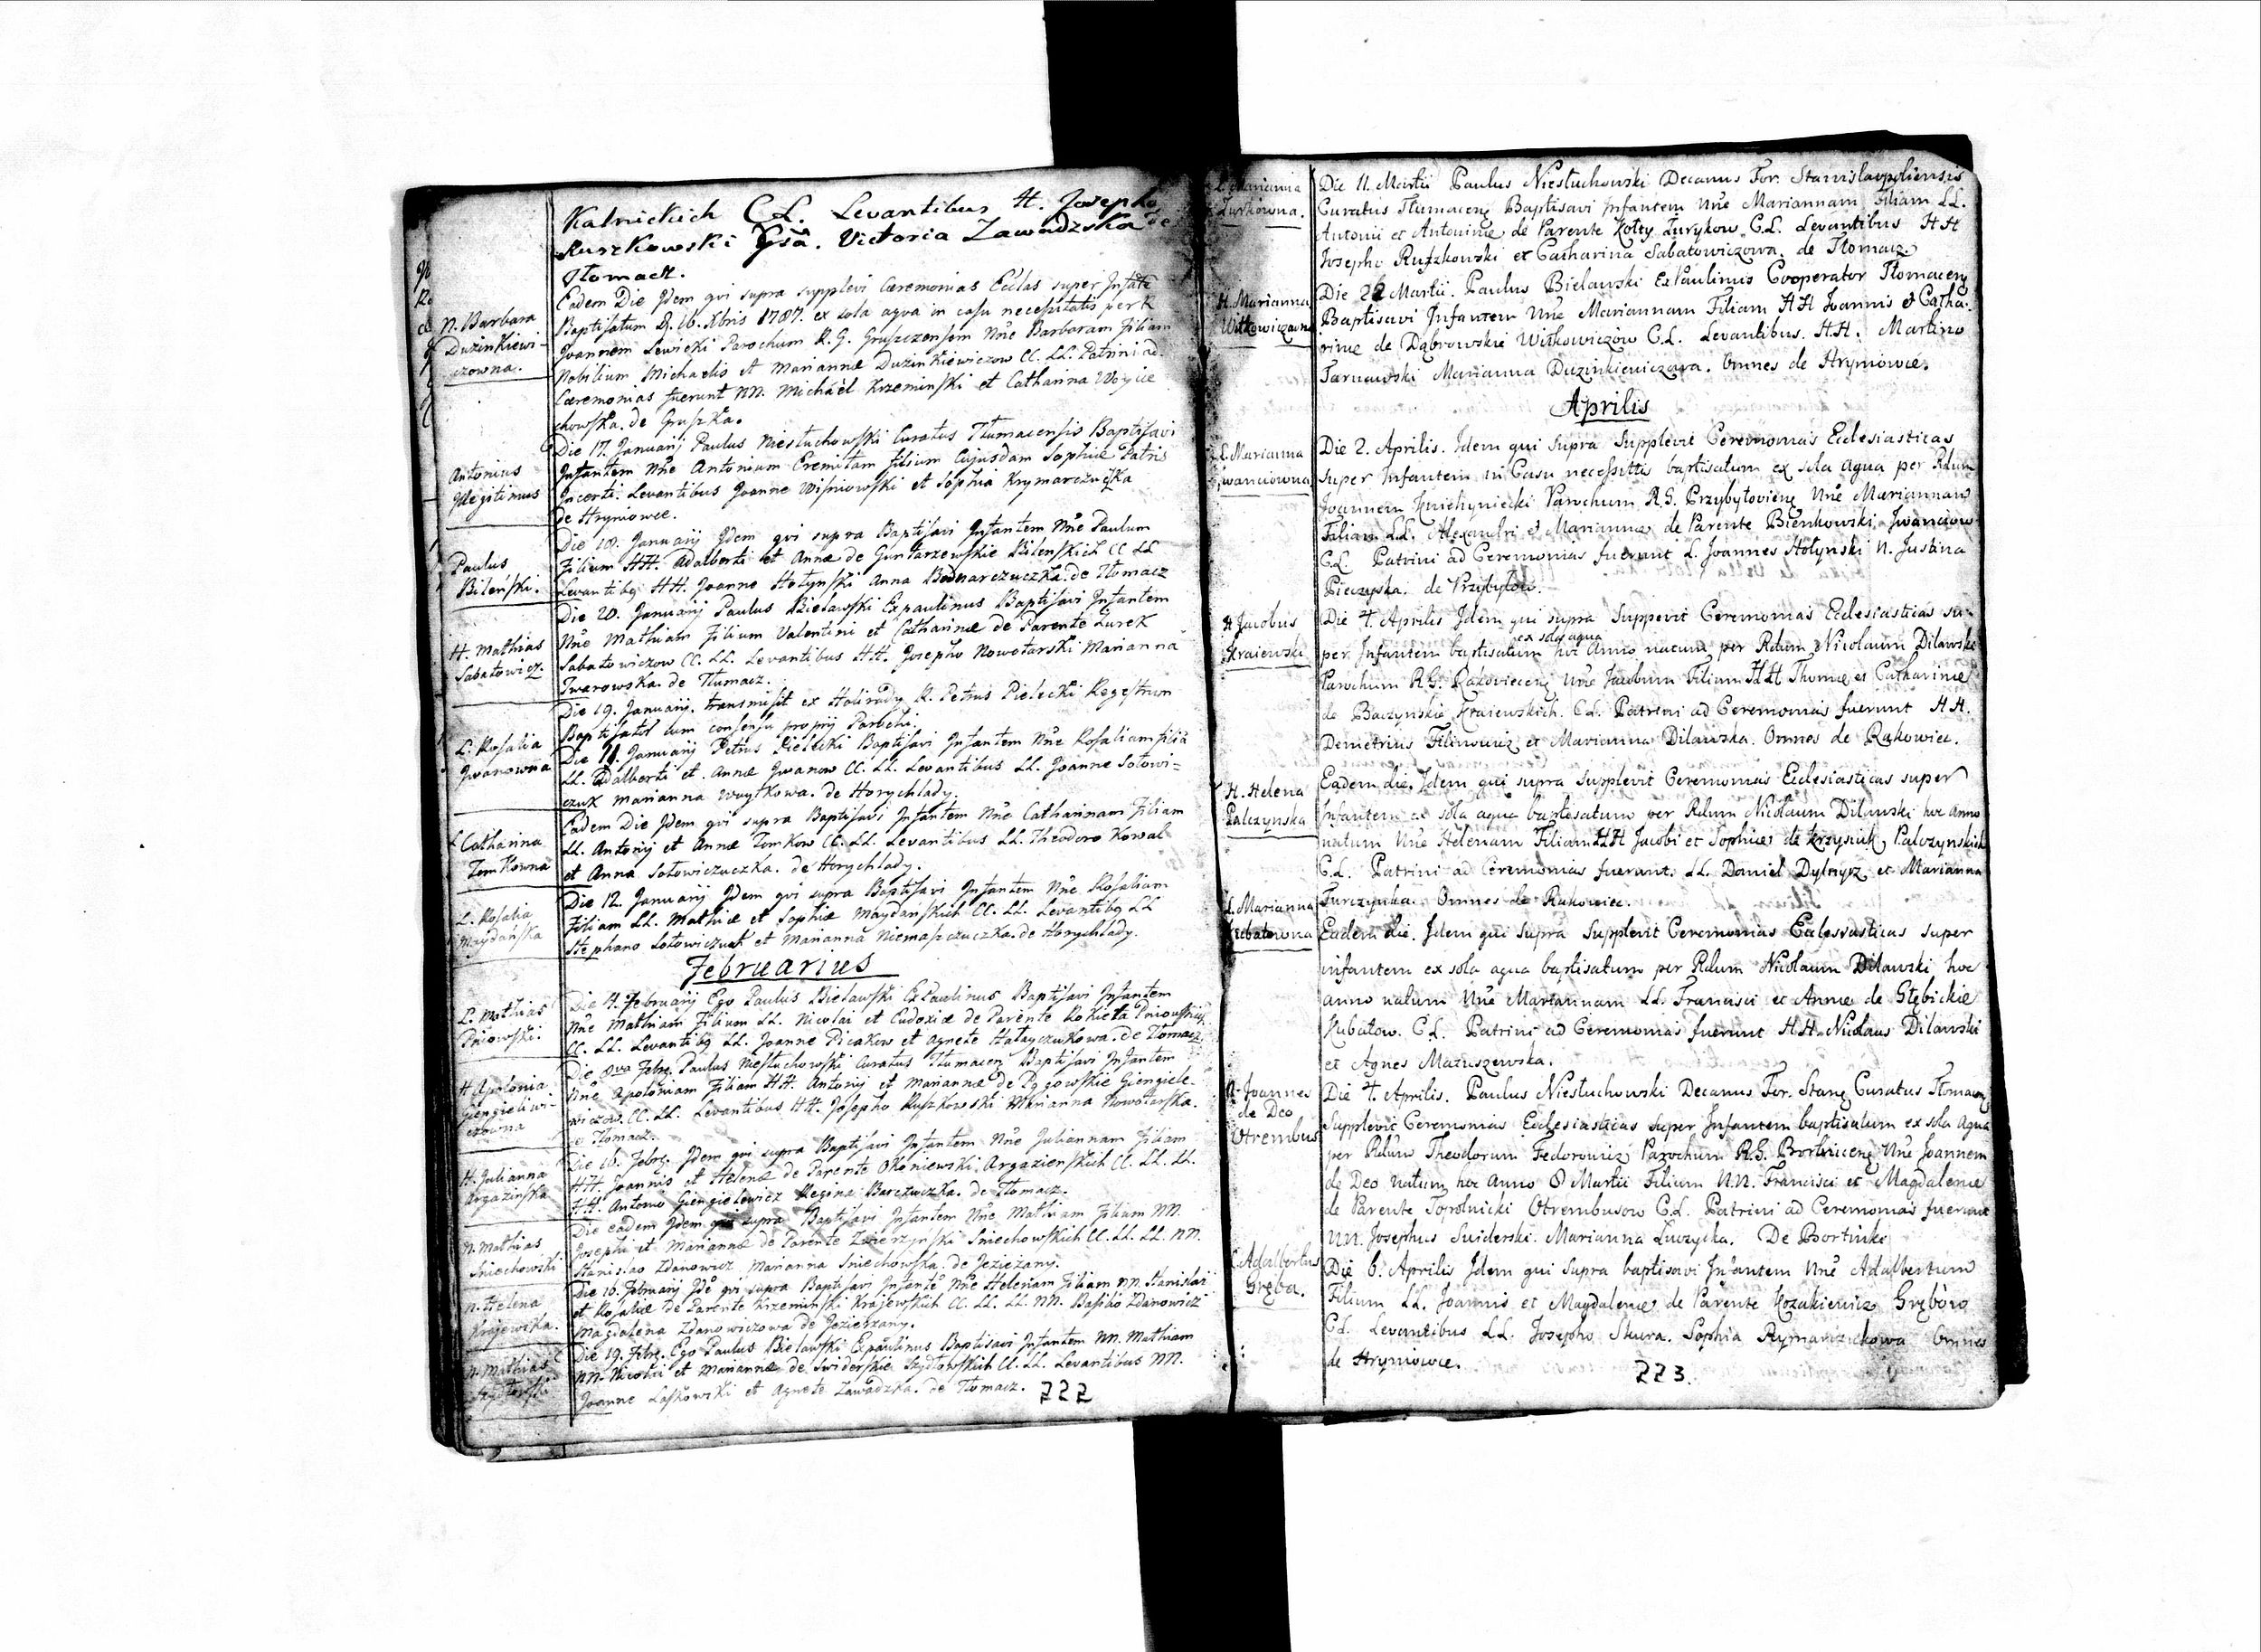 Kalnickich C.L. Levantibus H. Josepho
Ruszkowski Gsa. Victoria Zawadzska de
Tłomacz.
N. Barbara
Duzinkiewi-
czowna.
Eadem Die Jdem qvi supra supplevi Cæremonias Ecclas super Jnfāte
Baptisatum D. 16. Xbris 1787. ex sola aqva in casu necessitatis per R
Joannem Lewicki Parochum R.G. Gruszczensem Nñe Barbaram Filiam
Nobilium Michaelis et Mariannæ Duzinkiewiczow CC. LL. Patrini ad
Cæremonias fuerunt NN. Michaël Krzeminski et Catharina Woycie
chowska. de Gruszka.
Antonius
Jllegitimus
Die 17. Januarij Paulus Niestuchowski Curatus Tłumacensis Baptisavi
Jnfantem Nñe Antonium Eremitam filium Cujusdam Sophiæ Patris
Jncerti. Levantibus Joanne Wisniowski et Sophia Krymarczuczka
de Hryniowce.
Paulus
Bilenski.
Die 18. Januarij Jdem qvi supra Baptisavi Jnfantem Nñe Paulum
Filium HH. Adalberti et Annæ de Guntarzewskie Bilenskich CC LL
Levantibq HH. Joanne Hołynski Anna Bednarczuczka. de Tłomacz
H. Mathias
Sabatowicz
Die 20. Januarij Paulus Bielawski Expaulinus Baptisavi Jnfantem
Nñe Mathiam Filium Valentini et Catharinæ de Parente Lurek
Sabatowiczow CC. LL. Levantibus HH. Josepho Nowotarski Marianna
Twarowska. de Tłumacz.
Die 19. Januarij. transmisit ex Holirady R. Petrus Pielecki Regestrum
Baptisatoř cum consensu proprij Parochi.
L. Rosalia
Jwanowna
Die 11. Januarij Petrus Pielecki Baptisavi Jnfantem Nñe Rosaliam filiā
LL. Adalberti et Annæ Jwanow CC. LL. Levantibus LL. Joanne Sotowi-
czuk Marianna Woytkowa. de Horychlady.
L Catharina
Tomkowna
Eadem Die Jdem qvi supra Baptisavi Jnfantem Nñe Catharinam Filiam
LL. Antonij et Annæ Tomkow CC. LL. Levantibus LL. Theodoro Kowal
et Anna Sotowiczuczka. de Horychlady.
L. Rosalia
Maydańska
Die 12. Januarij Jdem qvi supra Baptisavi Jnfantem Nñe Rosaliam
Filiam LL. Mathiæ et Sophiæ Maydańskich CC. LL. Levantibq LL
Stephano Sotowiczuk et Marianna Niemaszczuczka. de Horychlady.
Februarius
L. Mathias
Pniowski.
Die 4. Februarij Ego Paulus Bielawski ExPaulinus Baptisavi Jnfantem
Nñe Mathiam Filium LL. Nicolai et Eudoxiæ de Parente Rokieta Pniowskich
CC. LL. Levantibq LL. Joanne Dicakow et Agnete Hałayczukowa. de Tłomacz.
H Apolonia
Giengielewi-
czowna
Die 8va Febrę. Paulus Niestuchowski Curatus Tłumacenę Baptisavi Jnfantem
Nñe Apoloniam Filiam HH. Antonij et Mariannæ de Rzgowskie Giengiele-
wiczow. CC. LL. Levantibus HH. Josepho Ruszkowski Marianna Nowotarska.
de Tłomacz.
H. Julianna
Argazinska
Die 16. Febrę. Jdem qvi supra Baptisavi Jnfantem Nñe Juliannam Filiam
HH. Joannis et Helenæ de Parente Okoniewski Argazienskich CC. LL. LL.
HH. Antonio Giengielewicz Regina Barczuczka. de Tłomacz.
N. Mathias
Sniechowski
Die eadem Jdem qvi supra Baptisavi Jnfantem Nñe Mathiam Filium NN.
Josephi et Mariannæ de Parente Zwierzynski Sniechowskich CC. LL. LL. NN.
Stanislao Zdanowicz Marianna Sniechowska. de Jezierzany.
N. Helena
Krajewska.
Die 18. Februarij Jdē qvi supra Baptisavi Jnfantē Nñe Helenam Filiam NN Stanislai
et Rosaliæ de Parente Krzeminski Krajewskich CC. LL. LL. NN. Basilio Zdanowicz
Magdalena Zdanowiczowa de Jezierzany.
N. Mathias
Szydłowski
Die 19. Febrę. Ego Paulus Bielawski Expaulinus Baptisavi Jnfantem NN. Mathiam
NN. Nicolai et Mariannæ de Swiderskie Szydłowskich CC. LL. Levantibus NN.
Joanne Laskowski et Agnete Zawadzka. de Tłomacz.
222
L. Marianna
Żurkowna.
Die 11. Martii Paulus Niestuchowski Decanus For. Stanislaopoliensis
Curatus Tłumacenę Baptisavi Jnfantem Nñe Mariannam Filiam LL.
Antonii et Antoninę de Parente Kołty Żurykow C.L. Levantibus HH
Josepho Ruszkowski et Catharina Sabatowiczowa. de Tłomacz.
H. Marianna
Witkowiczowna
Die 22 Martii. Paulus Bielawski ExPaulinus Cooperator Tłomacenę
Baptisavi Jnfantem Nñe Mariannam Filiam HH Joannis et Catha-
rinæ de Dąbrowskie Witkowiczow C.L. Levantibus. HH. Martino
Tarnawski Marianna Duzinkiewiczowa. Omnes de Hryniowce.
Aprilis
L. Marianna
Jwanciowna
Die 2. Aprilis. Jdem qui supra Supplevit Ceremonias Ecclesiasticas
super Jnfantem in Casu necessittis baptisatum ex sola aqua per Rdum
Joannem Kniehyniecki Parochum R.G. Przybyłovienę Nñe Mariannam
Filiam LL. Alexandri et Mariannæ de Parente Bienkowski Jwanciow
C.L. Patrini ad Ceremonias fuerunt L. Joannes Hołynski N. Justina
Pieczyska. de Przybyłow.
H Jacobus
Kraiewski
Die 4. Aprilis Jdem qui supra Suppevit Ceremonias Ecclesiasticas su-
ex sola aqua
per Jnfantem baptisatum hoc Anno natum per Rdum Nicolaum Dilawski
Parochum R.G. Rakoviecenę Nñe Jacobum Filium HH Thomæ et Catharinæ
de Baczynskie Kraiewskich. C.L. Patrini ad Ceremonias fuerunt HH.
Demetrius Filinowicz et Marianna Dilawska. Omnes de Rakowiec.
H. Helena
Palczynska
Eadem die. Jdem qui supra Supplevit Ceremonias Ecclesiasticas super
Jnfantem ex sola aqua baptisatum per Rdum Nicolaum Dilawski hoc Anno
natum Nñe Helenam Filiam HH Jacobi et Sophiæ de Krzysiuk, Palczynskich
C.L. Patrini ad Ceremonias fuerunt. LL. Daniel Dytnysz et Marianna
Turczynka. Omnes de Rakowiec.
L. Marianna
Kubatowna
Eadem die. Jdem qui Supra Supplevit Ceremonias Ecclesiasticas super
infantem ex sola aqua baptisatum per Rdum Nicolaum Dilawski hoc
anno natum Nñe Mariannam LL. Francisci et Annæ de Głębickie
Kubatow. C.L. Patrini ad Ceremonias fuerunt H.H. Nicolaus Dilawski
et Agnes Matuszewska.
N. Joannes
de Deo
Otrembus
Die 4. Aprilis. Paulus Niestuchowski Decanus For. Stanę Curatus Tłomacenę
Supplevit Ceremonias Ecclesiasticas super Jnfantem baptisatum ex sola aqua
per Rdum Theodorum Fedorowicz Parochum R.G. Bortnicenę Nñe Joannem
de Deo natum hoc Anno 8 Martii Filium N.N. Francisci et Magdalenæ
de Parente Toporolnicki Otrembusow C.L. Patrini ad Ceremonias fuerunt
NN. Josephus Swiderski. Marianna Łuczycka. De Bortniki
L. Adalbertus
Gręba.
Die 6. Aprilis Jdem qui supra baptisavi Jnfantem Nñe Adalbertum
Filium LL. Joannis et Magdalenæ de Parente Kozakiewicz Grębow
C.L. Levantibus LL. Josepho Skura. Sophia Rymarczukowa Omnes
de Hryniowce.
223.